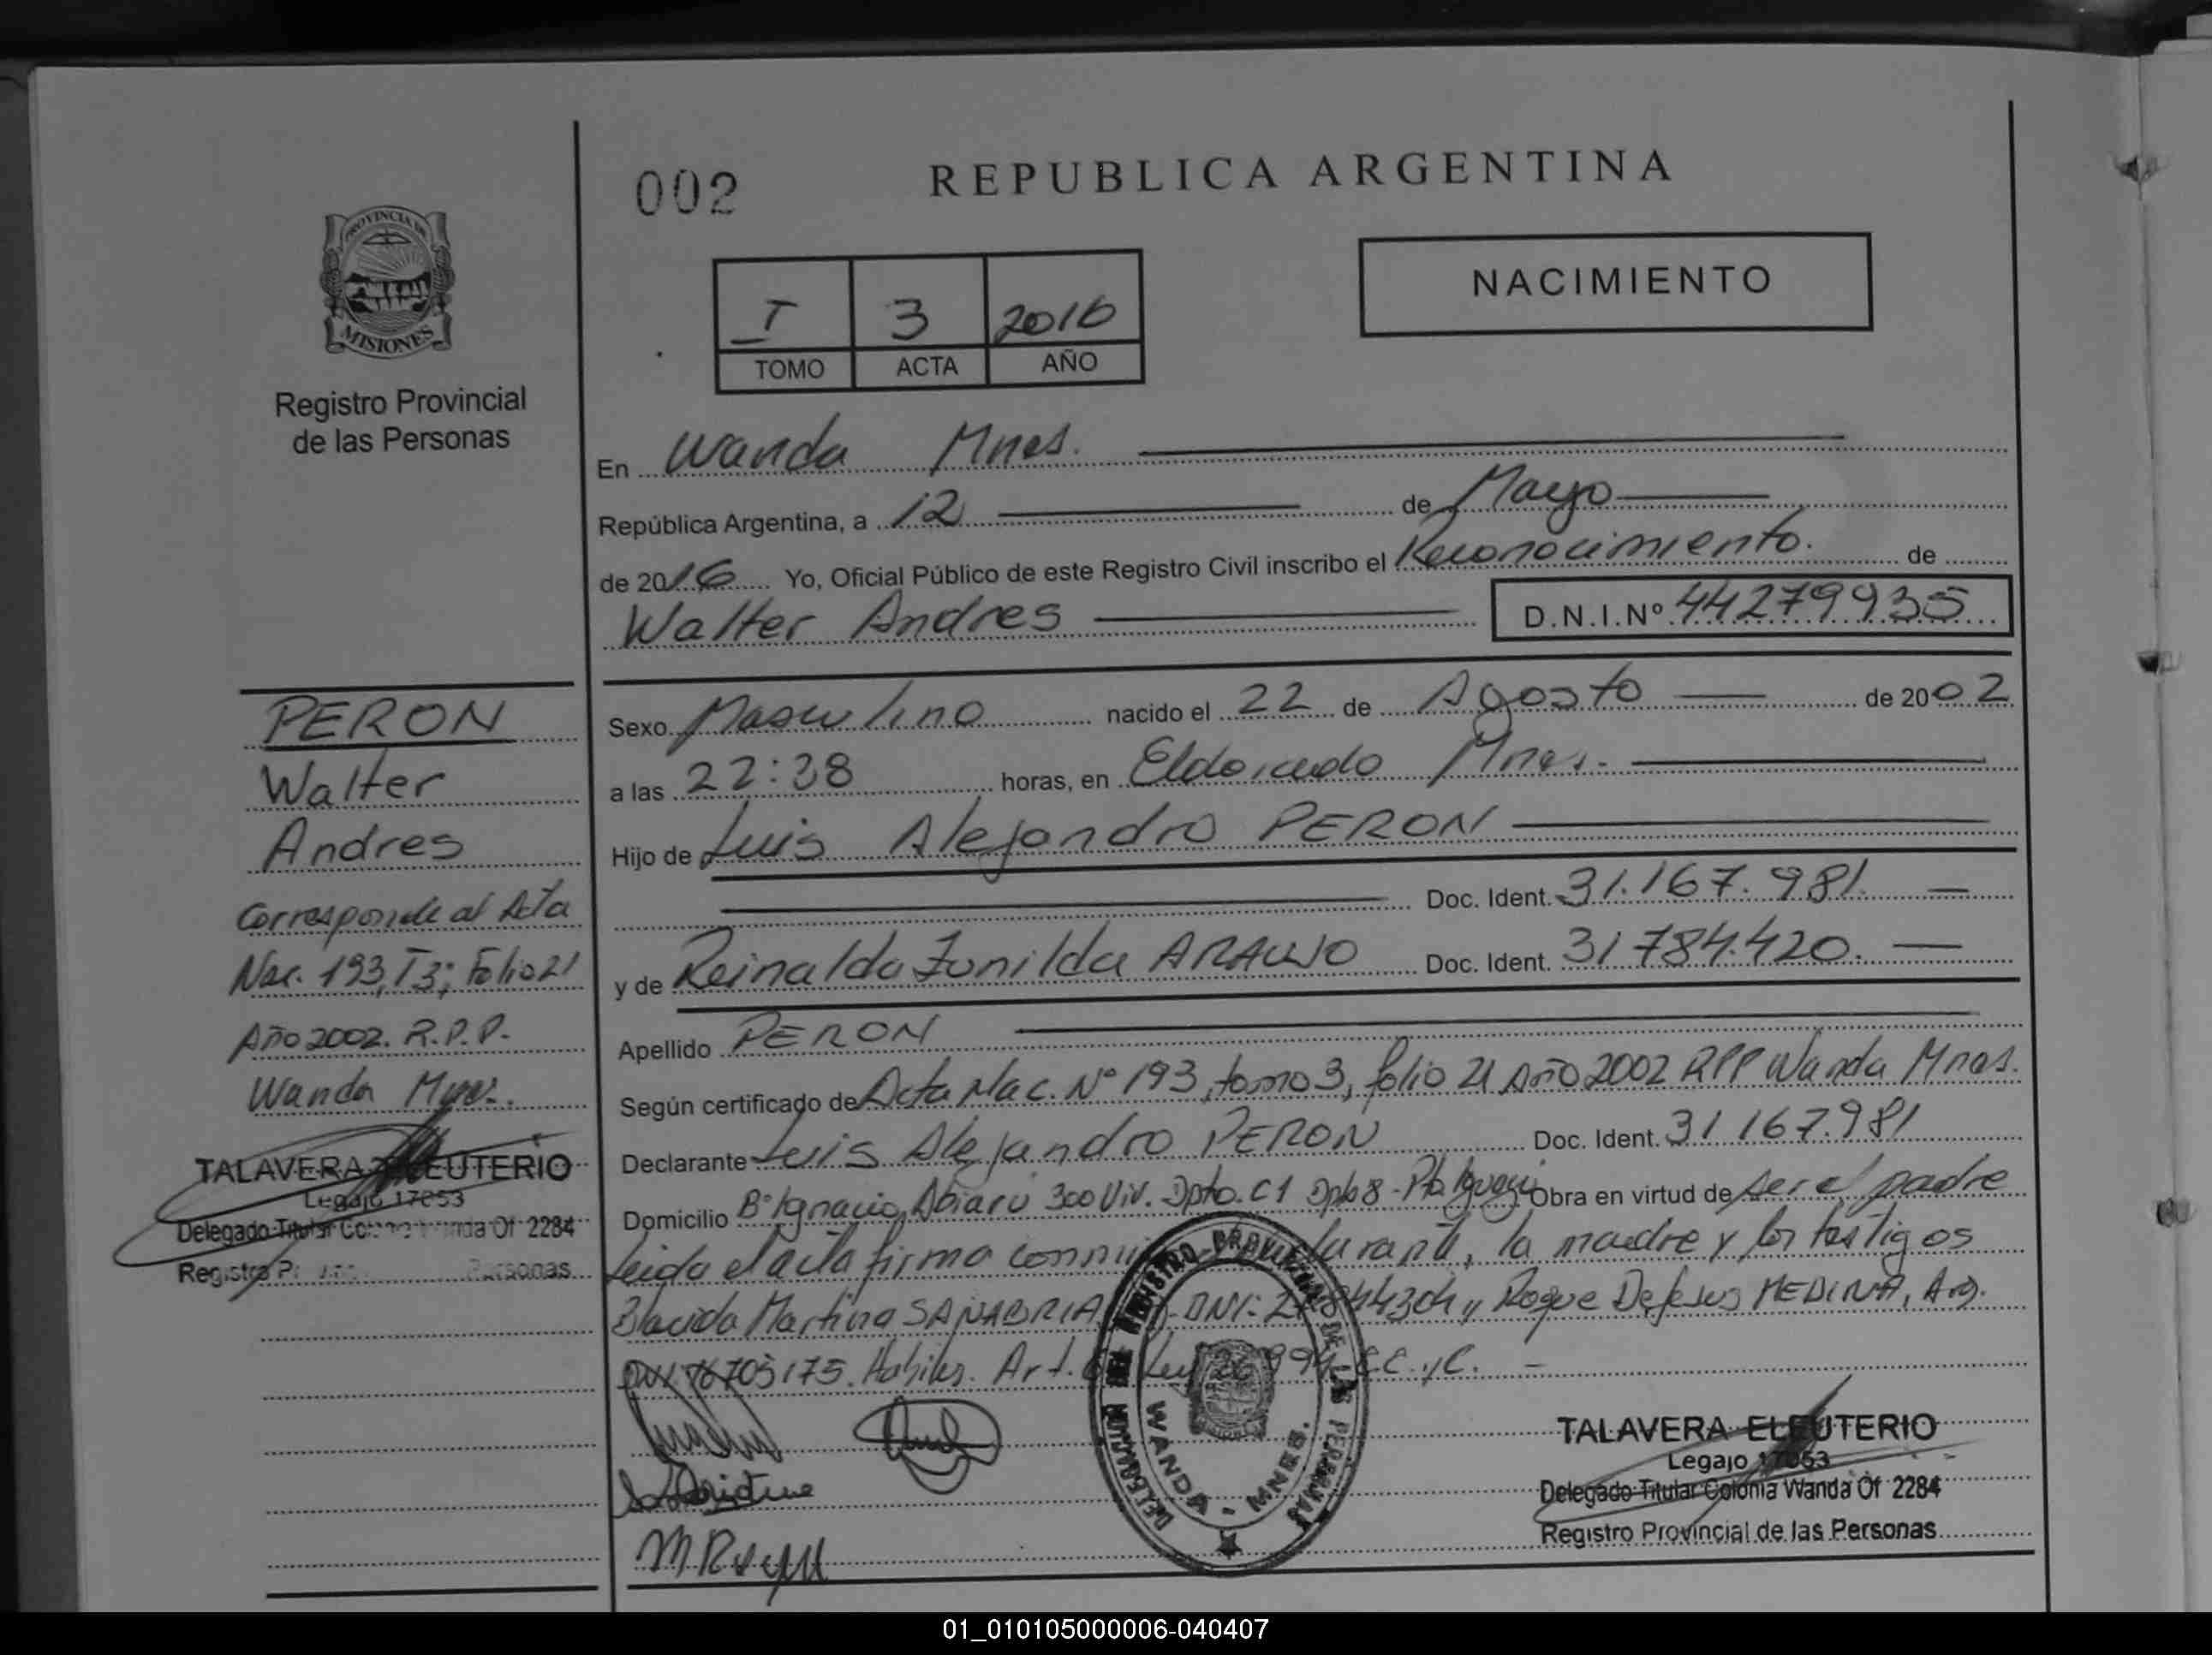 002
REPUBLICA ARGENTINA
NACIMIENTO
I 3 2016
TOMO ACTA AÑO
PROVINCIA DE
MISIONES
Registro Provincial
de las Personas
En Wanda Mnes.
República Argentina, a 12 de Mayo
de 2016 Yo, Oficial Público de este Registro Civil inscribo el Reconocimiento. de
Walter Andres D.N.I.Nº 44279935
Sexo Masculino nacido el 22 de Agosto de 2002
a las 22:38 horas, en Eldorado Mnes.
Hijo de Luis Alejandro PERON
Doc. Ident. 31.167.981.
y de Reinalda Zunilda ARAUJO Doc. Ident. 31784.420.
Apellido PERON
Según certificado de Acta Nac. Nº 193, tomo 3, folio 21 Año 2002 RPP Wanda Mnes.
Declarante Luis Alejandro PERON Doc. Ident. 31167.981
Domicilio Bº Ignacio Abiarú 300 Viv. Dpto. C1 Dpto 8 - Pto Iguazú Obra en virtud de ser el padre
Leida el acta firma la madre y los testigos
Martina SANABRIA DNI: Roque De Jesus MEDINA, Arg.
Habiles. Art. Ley C.C. y C.
PERON
Walter
Andres
Corresponde al Acta
Nac. 193, T3; Folio 21
Año 2002. R.P.P.
Wanda Mnes.
TALAVERA ELEUTERIO
Legajo 17053
Delegado Titular Colonia Wanda Of 2284
Registro Personas
DELEGADO DEL REGISTRO PROVINCIAL DE LAS PERSONAS
WANDA - MNES.
TALAVERA ELEUTERIO
Legajo 17053
Delegado Titular Colonia Wanda Of 2284
Registro Provincial de las Personas
01_010105000006-040407